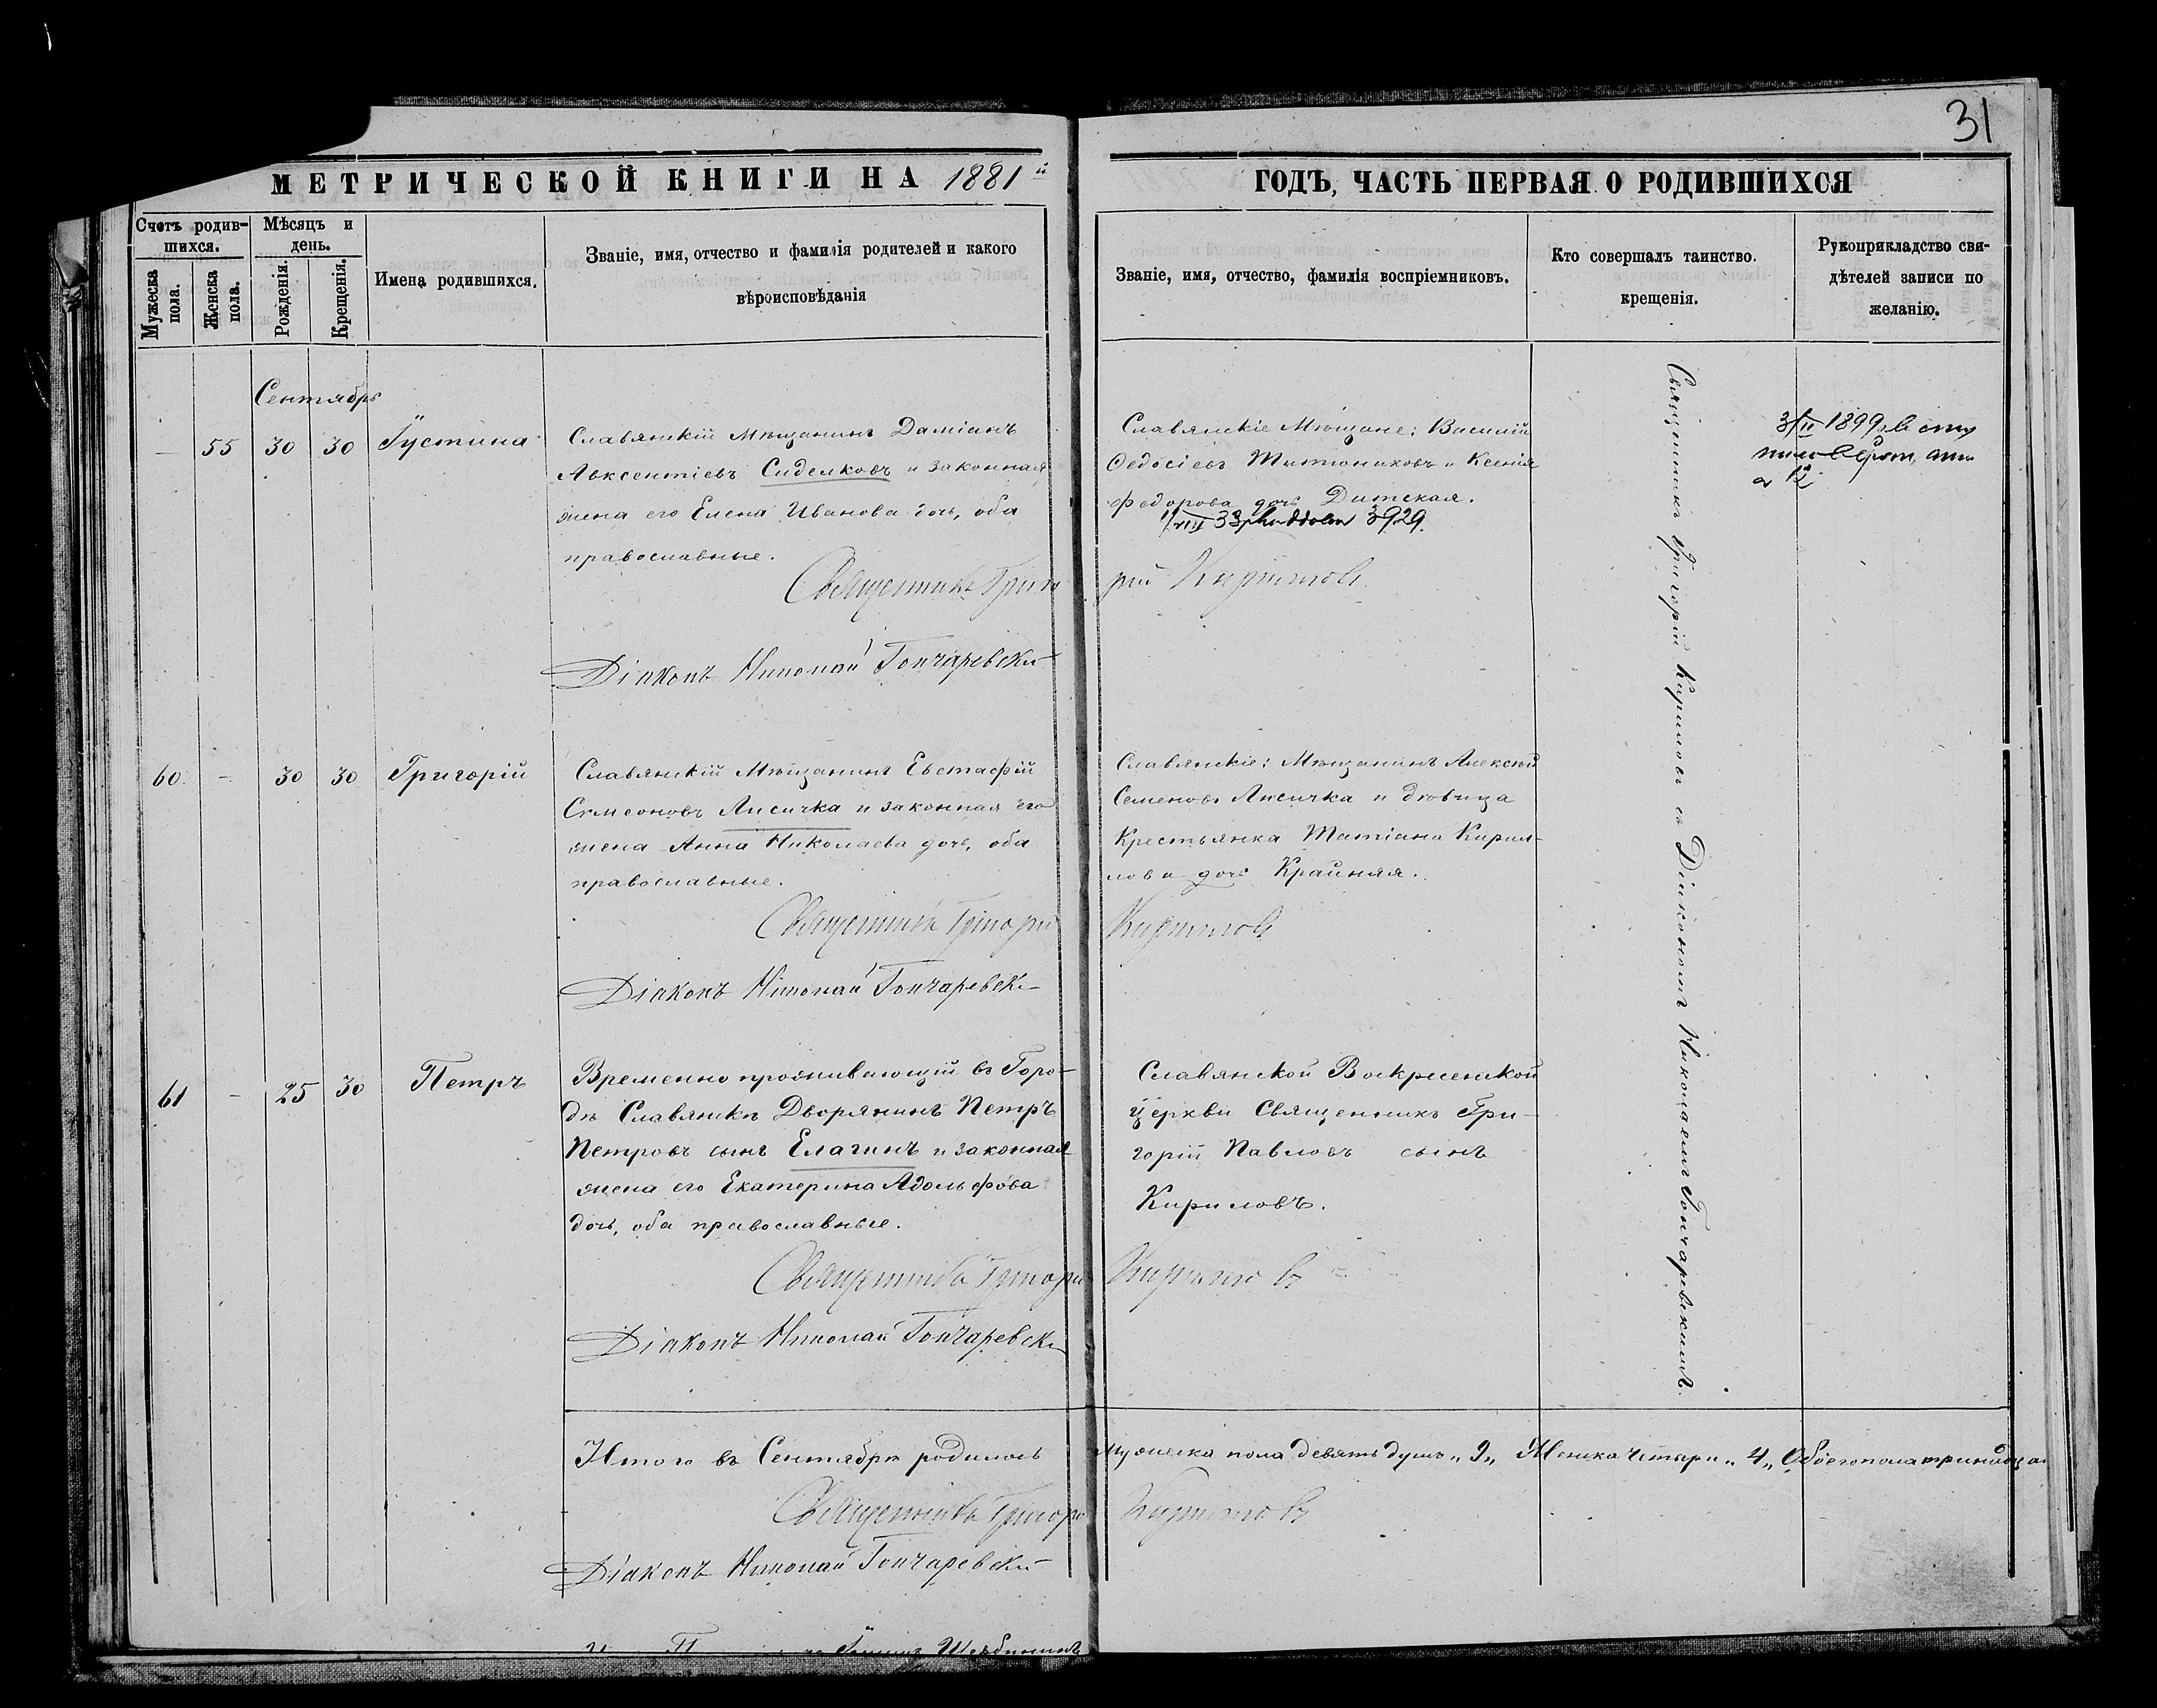 31
МЕТРИЧЕСКОЙ КНИГИ НА 1881й
ГОДЪ, ЧАСТЬ ПЕРВАЯ О РОДИВШИХСЯ
Счетъ родив-
шихся.
Мѣсяцъ и
день.
Мужеска
пола.
Женска
пола.
Рожденія.
Крещенія.
Имена родившихся.
Званіе, имя, отчество и фамилія родителей и какого
вѣроисповѣданія
Званіе, имя, отчество, фамилія воспріемниковъ.
Кто совершалъ таинство
крещенія.
Рукоприкладство сви-
дѣтелей записи по
желанію.
Сентябрь
— 55 30 30 Іустина
Славянскій Мѣщанинъ Даміанъ
Авксентіевъ Сиделковъ и законная
жена его Елена Иванова дочь, оба
православные.
Славянскіе Мѣщане: Василій
Ѳедосіевъ Титюниковъ и Ксенія
Федорова дочь Дитская.
1899
Священникъ Григорій Кириловъ
Діаконъ Николай Гончаревскій
Священникъ Григорій Кириловъ съ Діакономъ Николаемъ Гончаревскимъ.
60 — 30 30 Григорій
Славянскій Мѣщанинъ Евстафій
Симеоновъ Лисичка и законная его
жена Анна Николаева дочь, оба
православные.
Славянскіе: Мѣщанинъ Алексѣй
Семеновъ Лисичка и дѣвица
Крестьянка Татіана Кирил-
лова дочь Крайняя.
Священникъ Григорій Кириловъ
Діаконъ Николай Гончаревскій
61 — 25 30 Петръ
Временно проживающій въ Горо-
дѣ Славянскѣ Дворянинъ Петръ
Петровъ сынъ Елагинъ и законная
жена его Екатерина Адольфова
дочь, оба православные.
Славянской Воскресенской
церкви Священникъ Гри-
горій Павловъ сынъ
Кириловъ.
Священникъ Григорій Кириловъ
Діаконъ Николай Гончаревскій
Итого въ Сентябрѣ родилось мужеска пола девять душъ „9„ Женска четыри „4„ Обоего пола тринадца
Священникъ Григорій Кириловъ
Діаконъ Николай Гончаревскій